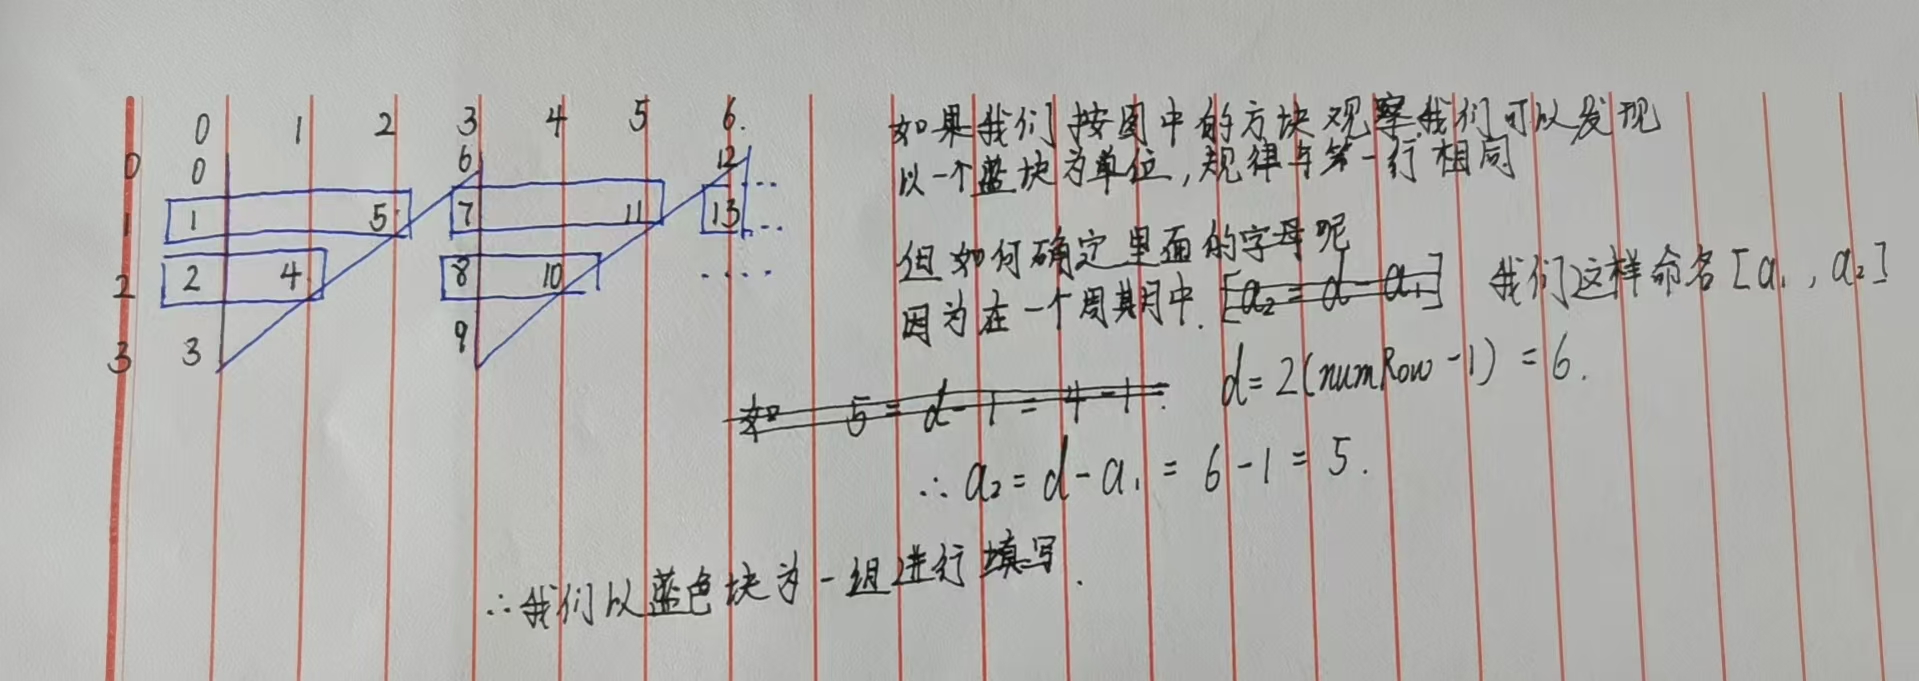 0 1 2 3 4 5 6.
0 0 6 12
1 1 5 7 11 13 ...
2 2 4 8 10 ....
3 3 9
如果我们按图中的方块观察,我们可以发现
以一个蓝块为单位,规律与第一行相同
但如何确定里面的字母呢
因为在一个周期中. [a₂ = d - a₁] 我们这样命名[a₁, a₂]
d = 2(numRow - 1) = 6.
如 5 = d - 1 = 4 - 1 .
∴ a₂ = d - a₁ = 6 - 1 = 5.
∴ 我们以蓝色块为一组进行填写.